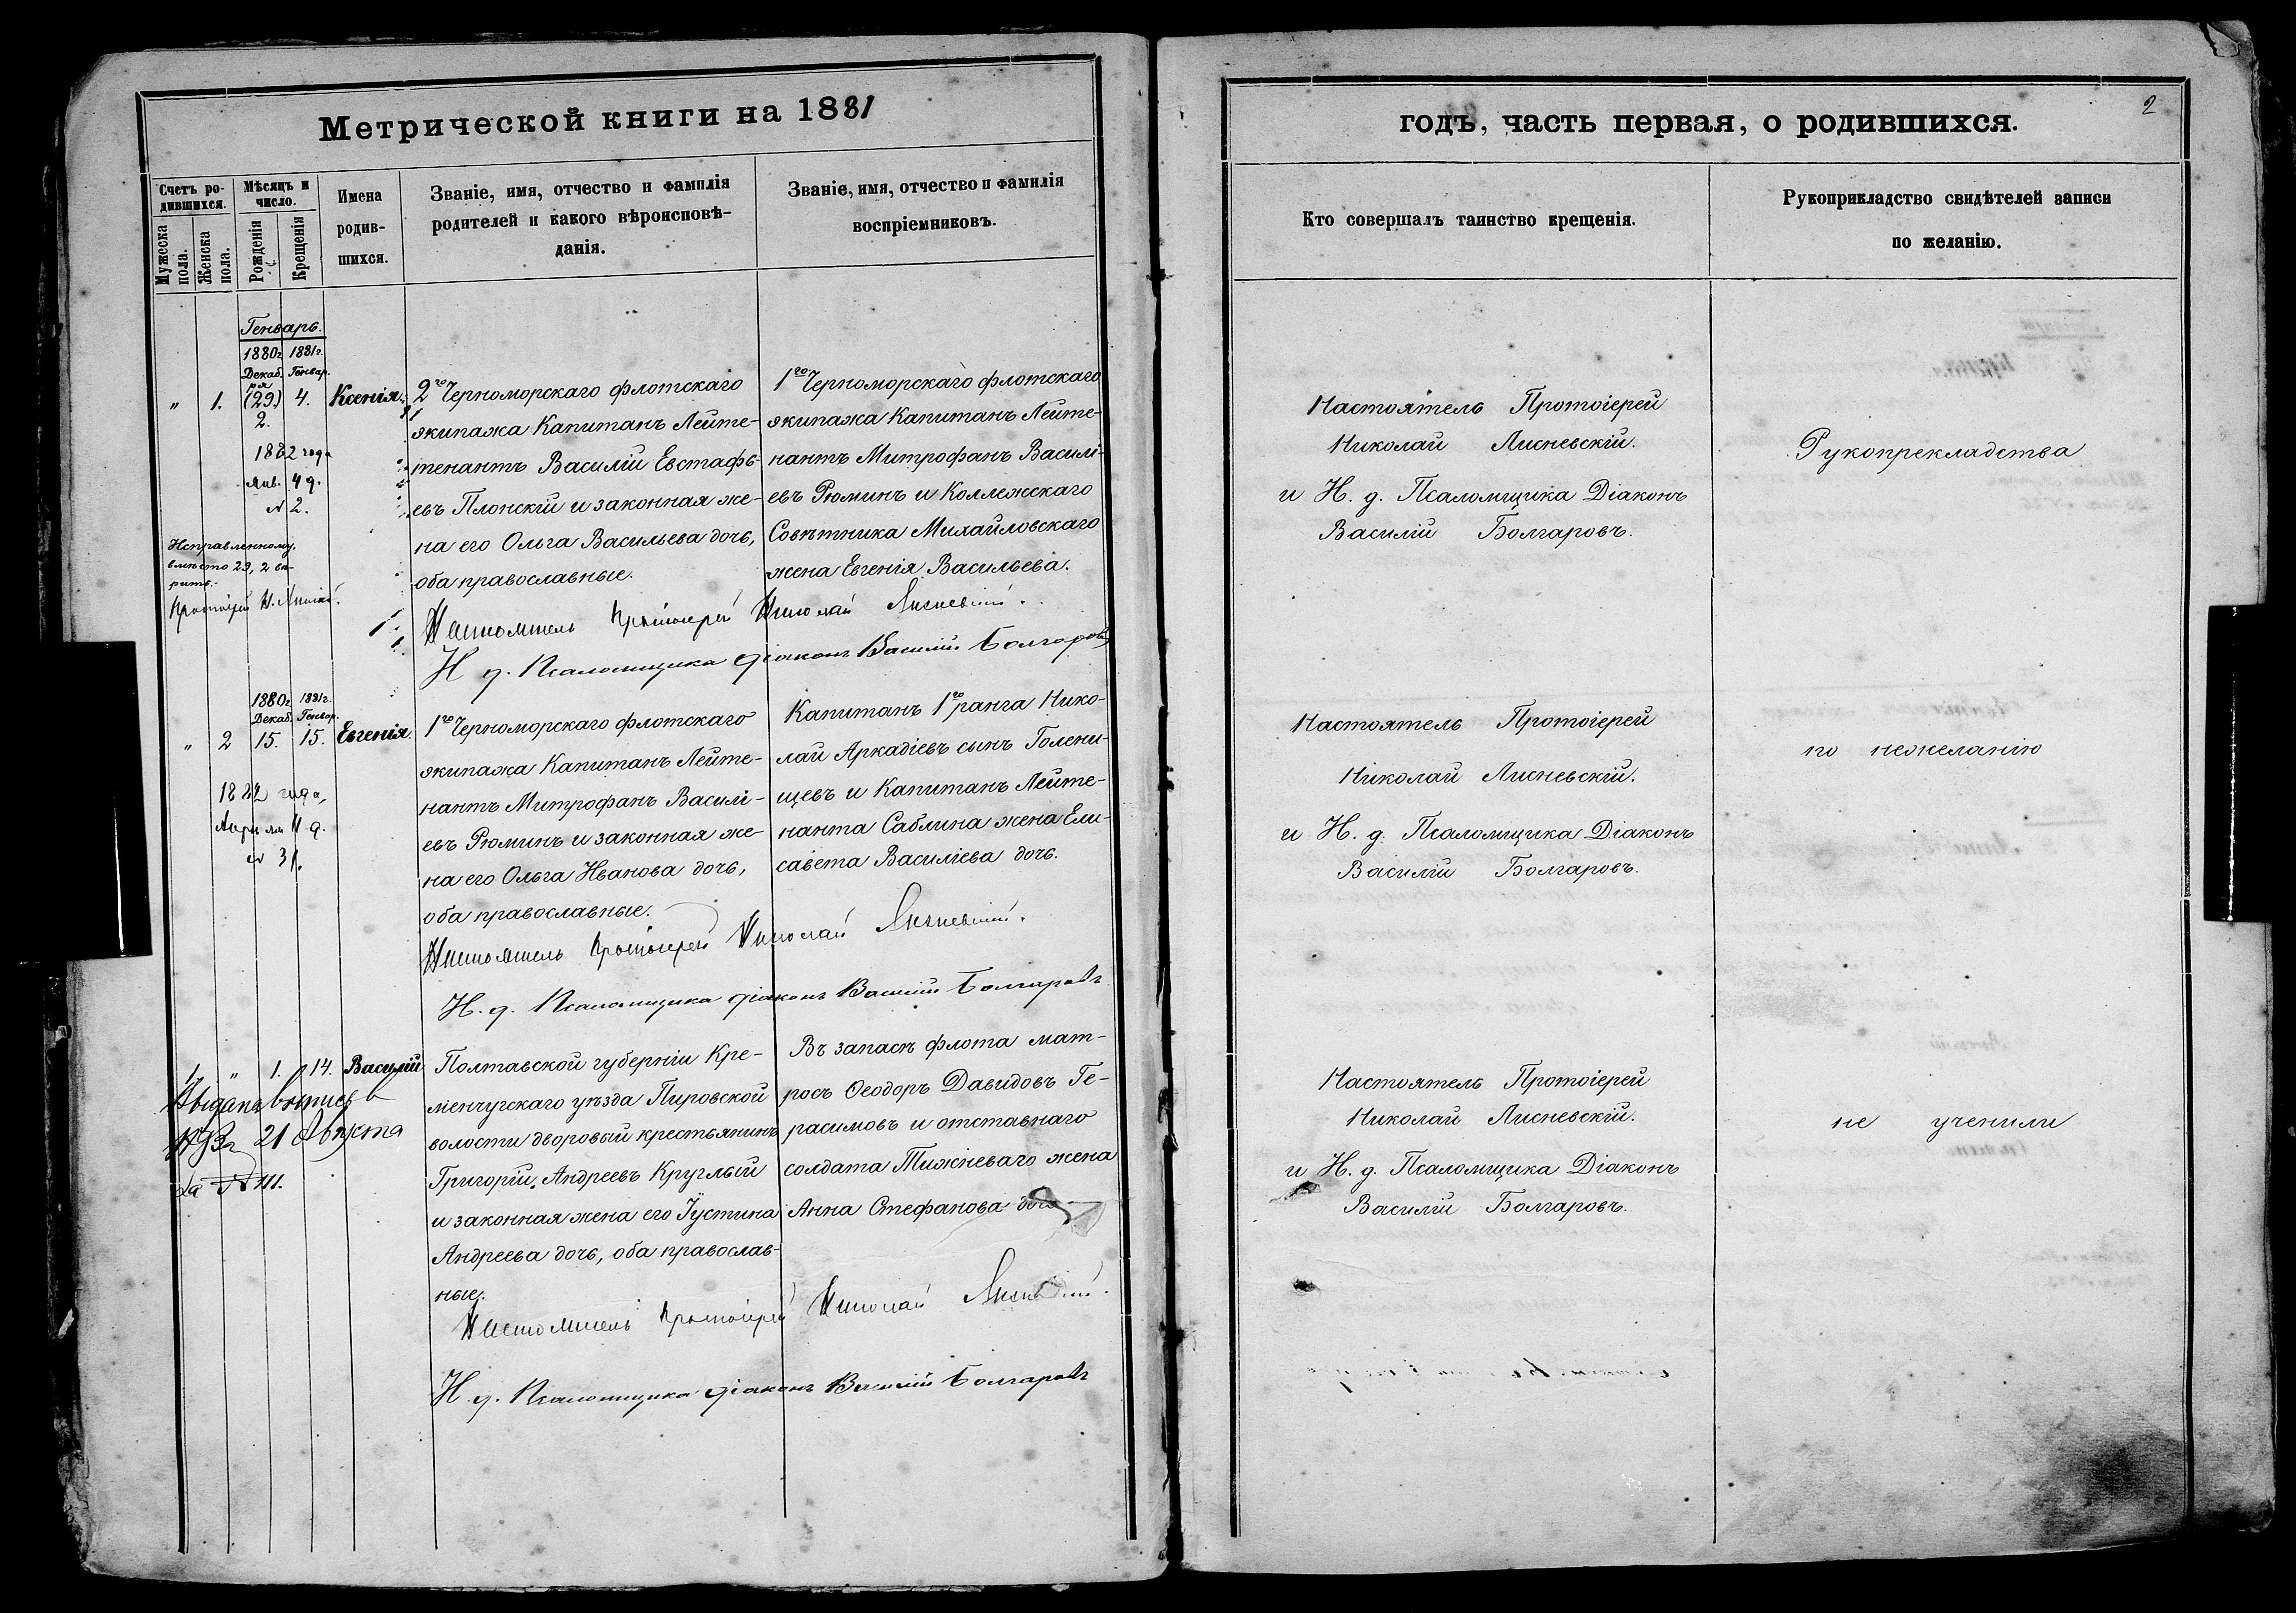 Метрической книги на 1881
Счетъ ро-
дившихся.
Мужеска
пола.
Женска
пола.
Мѣсяцъ и
число.
Рожденія
Крещенія
Имена
родив-
шихся.
Званіе, имя, отчество и фамилія
родителей и какого вѣроисповѣ-
данія.
Званіе, имя, отчество и фамилія
воспріемниковъ.
Генварь.
1880г. 1881г.
Декаб. Генвар.
ря
„ 1. (29.) 4. Ксенія.
2.
1882 года
Янв. 4 д.
№ 2.
Исправленному,
вмѣсто 29, 2 вѣ-
рить.
Протоіерей Н.
2го Черноморскаго флотскаго
экипажа Капитанъ Лейте-
тенантъ Василій Евстафь-
евъ Плонскій и законная же-
на его Ольга Васильева дочь,
оба православные.
1го Черноморскаго флотскаго
экипажа Капитанъ Лейте-
нантъ Митрофанъ Василі-
евъ Рюминъ и Коллежскаго
Совѣтника Михайловскаго
жена Евгенія Васильева.
Настоятель Протоіерей Николай Лисневскій.
И. д. Псаломщика діаконъ Василій Болгаровъ
1880г. 1881г.
Декаб. Генвар.
„ 2 15. 15. Евгенія.
1882 года,
Апреля 11 д.
№ 31.
1го Черноморскаго флотскаго
экипажа Капитанъ Лейте-
нантъ Митрофанъ Василі-
евъ Рюминъ и законная же-
на его Ольга Иванова дочь,
оба православные.
Капитанъ 1го ранга Нико-
лай Аркадіевъ сынъ Голени-
щевъ и Капитанъ Лейте-
нанта Саблина жена Ели-
савета Василіева дочь.
Настоятель Протоіерей Николай Лисневскій.
И. д. Псаломщика діаконъ Василій Болгаровъ
1. „ 1. 14. Василій
Выдана выпись
21 Августа
за № 111.
Полтавской губерніи Кре-
менчугскаго уѣзда Пировской
волости дворовый крестьянинъ
Григорій Андреевъ Круглый
и законная жена его Іустина
Андреева дочь, оба православ-
ные.
Въ запасѣ флота мат-
росъ Ѳеодоръ Давидовъ Ге-
расимовъ и отставнаго
солдата Тижневаго жена
Анна Стефанова дочь
Настоятель Протоіерей Николай Лисневскій.
И. д. Псаломщика діаконъ Василій Болгаровъ
2
годъ, часть первая, о родившихся.
Кто совершалъ таинство крещенія.
Рукоприкладство свидѣтелей записи
по желанію.
Настоятель Протоіерей
Николай Лисневскій.
и И. д. Псаломщика Діаконъ
Василій Болгаровъ.
Рукопрекладства
Настоятель Протоіерей
Николай Лисневскій.
и И. д. Псаломщика Діаконъ
Василій Болгаровъ.
по нежеланію
Настоятель Протоіерей
Николай Лисневскій.
и И. д. Псаломщика Діаконъ
Василій Болгаровъ.
не ученили